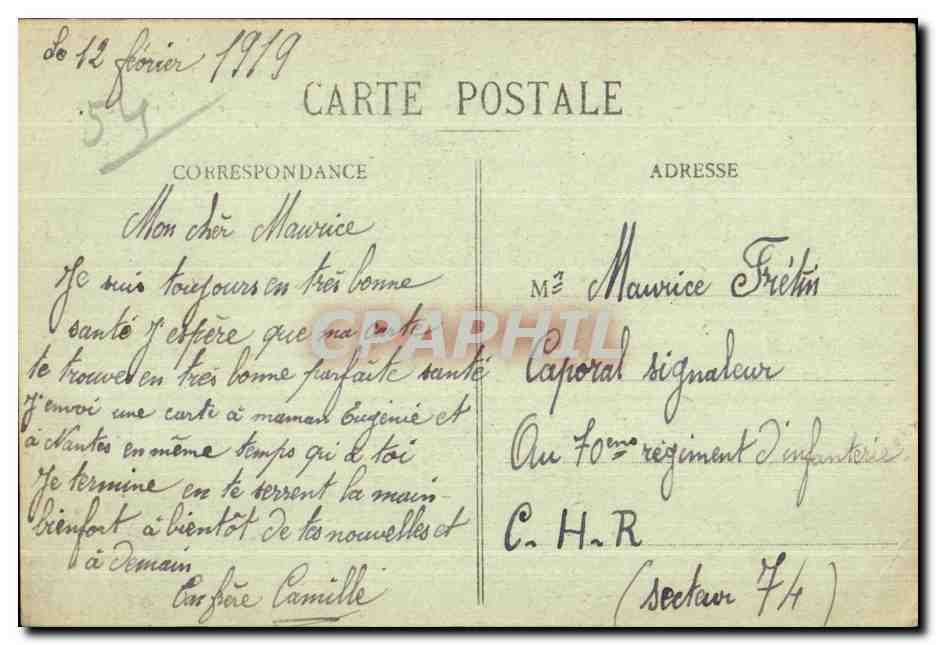 Le 12 février 1919
54
CARTE POSTALE
CORRESPONDANCE
Mon chèr Maurice
Je suis toujours en très bonne
santé J'espère que ma carte
te trouves en très bonne parfaite santé
J'envoi une carte à maman Eugénie et
à Nantes en même temps qui à toi
Je termine en te serrent la main
bienfort à bientôt de tes nouvelles et
à demain
Ton frère Camille
ADRESSE
Mr Maurice Frétin
Caporal signaleur
Au 70eme régiment d'infanterie
C-H-R
(secteur 74)
CPAPHIL